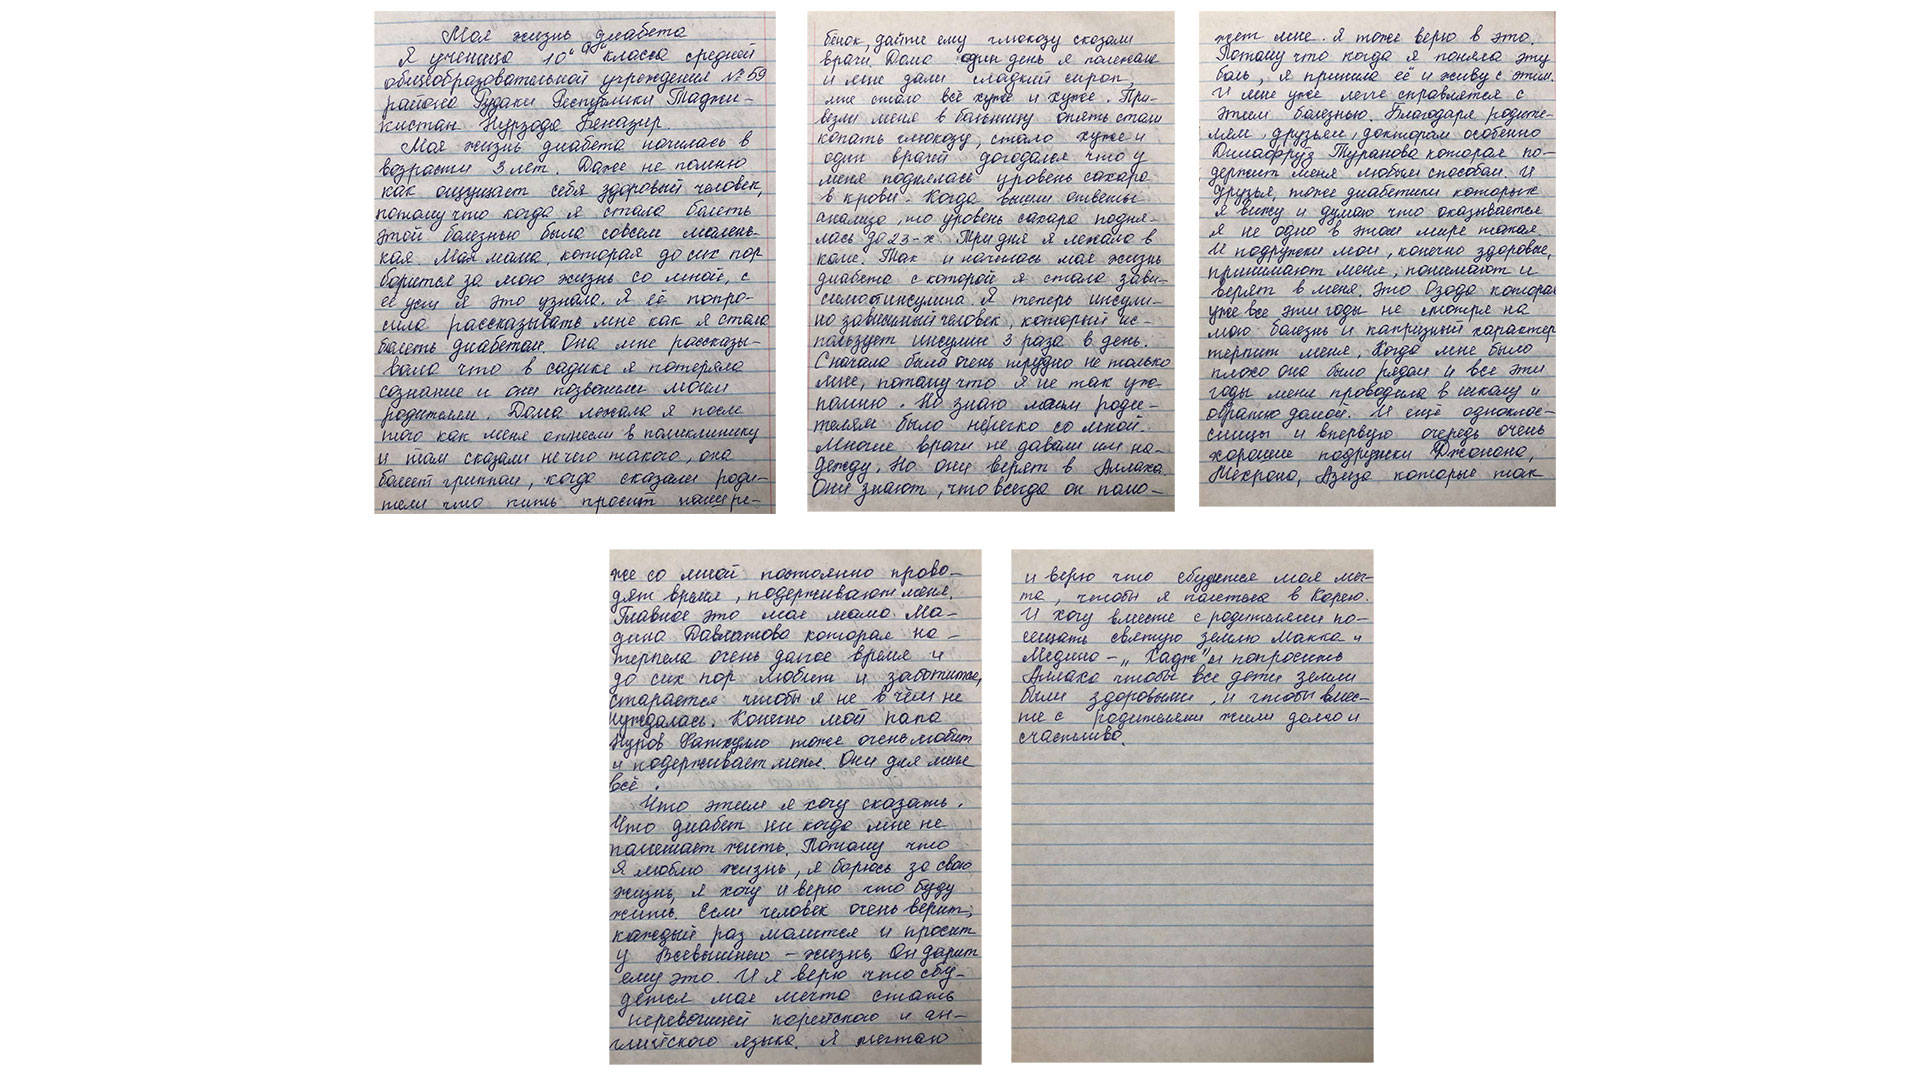 Моя жизнь диабета
Я ученица 10 "Г" класса средней
общеобразовательной учреждения № 59
района Рудаки Республики Таджи-
кистан Нурзода Беназир.
Моя жизнь диабета началась в
возрасти 3 лет. Даже не помню
как ощущает себя здоровый человек,
потому что когда я стала болеть
этой болезнью была совсем малень-
кая. Моя мама, которая до сих пор
борится за мою жизнь со мной, с
её уст я это узнала. Я её попро-
сила рассказывать мне как я стала
болеть диабетом. Она мне рассказы-
вала что в садике я потеряла
сознание и они позвонили моим
родителям. Дома лежала я после
того как меня отнесли в поликлинику
и там сказали нечего такого, она
болеет гриппом, когда сказали роди-
тели что пить просит наш ре-
бёнок, дайте ему глюкозу сказали
врачи. Дома один день я полежала
и мне дали сладкий сироп,
мне стало всё хуже и хуже. При-
везли меня в больницу опять стали
капать глюкозу, стало хуже и
один врачей догодался что у
меня поднялась уровень сахара
в крови. Когда вышли ответы
анализа, то уровень сахара подня-
лась до 23-х. Три дня я лежала в
коме. Так и началась моя жизнь
диабета с которой я стала зави-
сима от инсулина. Я теперь инсули-
но зависимый человек, который ис-
пользует инсулин 3 раза в день.
Сначала было очень трудно не только
мне, потому что я не так уж
помню. Но знаю моим роди-
телям было нелегко со мной.
Многие врачи не давали им на-
дежду. Но они верят в Аллаха.
Они знают, что всегда он помо-
жет мне. Я тоже верю в это.
Потому что когда я поняла эту
боль, я приняла её и живу с этим.
И мне уже легче справлятся с
этим болезнью. Благодаря родите-
лям, друзьям, докторам особенно
Дилафруз Туранова которая по-
держит меня любым способом. И
друзья, тоже диабетики которых
я вижу и думаю что оказывается
я не одно в этом мире такая.
И подружки мои, конечно здоровые,
принимают меня, понимают и
верят в меня. Это Озода которая
уже все эти годы не смотря на
мою болезнь и капризный характер
терпит меня. Когда мне было
плохо она была рядом и все эти
годы меня проводила в школу и
обратно домой. И ещё одноклас-
сницы и впервую очередь очень
хорошие подружки Джонона,
Мехрона, Азиза которые так
же со мной постоянно прово-
дят время, подерживают меня.
Главное это моя мама Ма-
дина Давлатова которая на-
терпела очень долгое время и
до сих пор любит и заботится,
старается чтобы я не в чём не
нуждалась. Конечно мой папа
Нуров Фатхулло тоже очень любит
и подерживает меня. Они для меня
всё.
Что этим я хочу сказать.
Что диабет ни когда мне не
помешает жить. Потому что
я люблю жизнь, я борюсь за свою
жизнь, я хочу и верю что буду
жить. Если человек очень верит,
каждый раз молится и просит
у Всевышнего - жизнь, Он дарит
ему это. И я верю что сбу-
дется моя мечта стать
переводчицей корейского и ан-
глийского языка. Я мечтаю
и верю что сбудется моя меч-
та, чтобы я полетела в Корею.
И хочу вместе с родителями по-
сещать святую землю Макка и
Медино - "Хадж" и попросить
Аллаха чтобы все дети земли
были здоровыми, и чтобы вмес-
те с родителями жили долго и
счастливо.